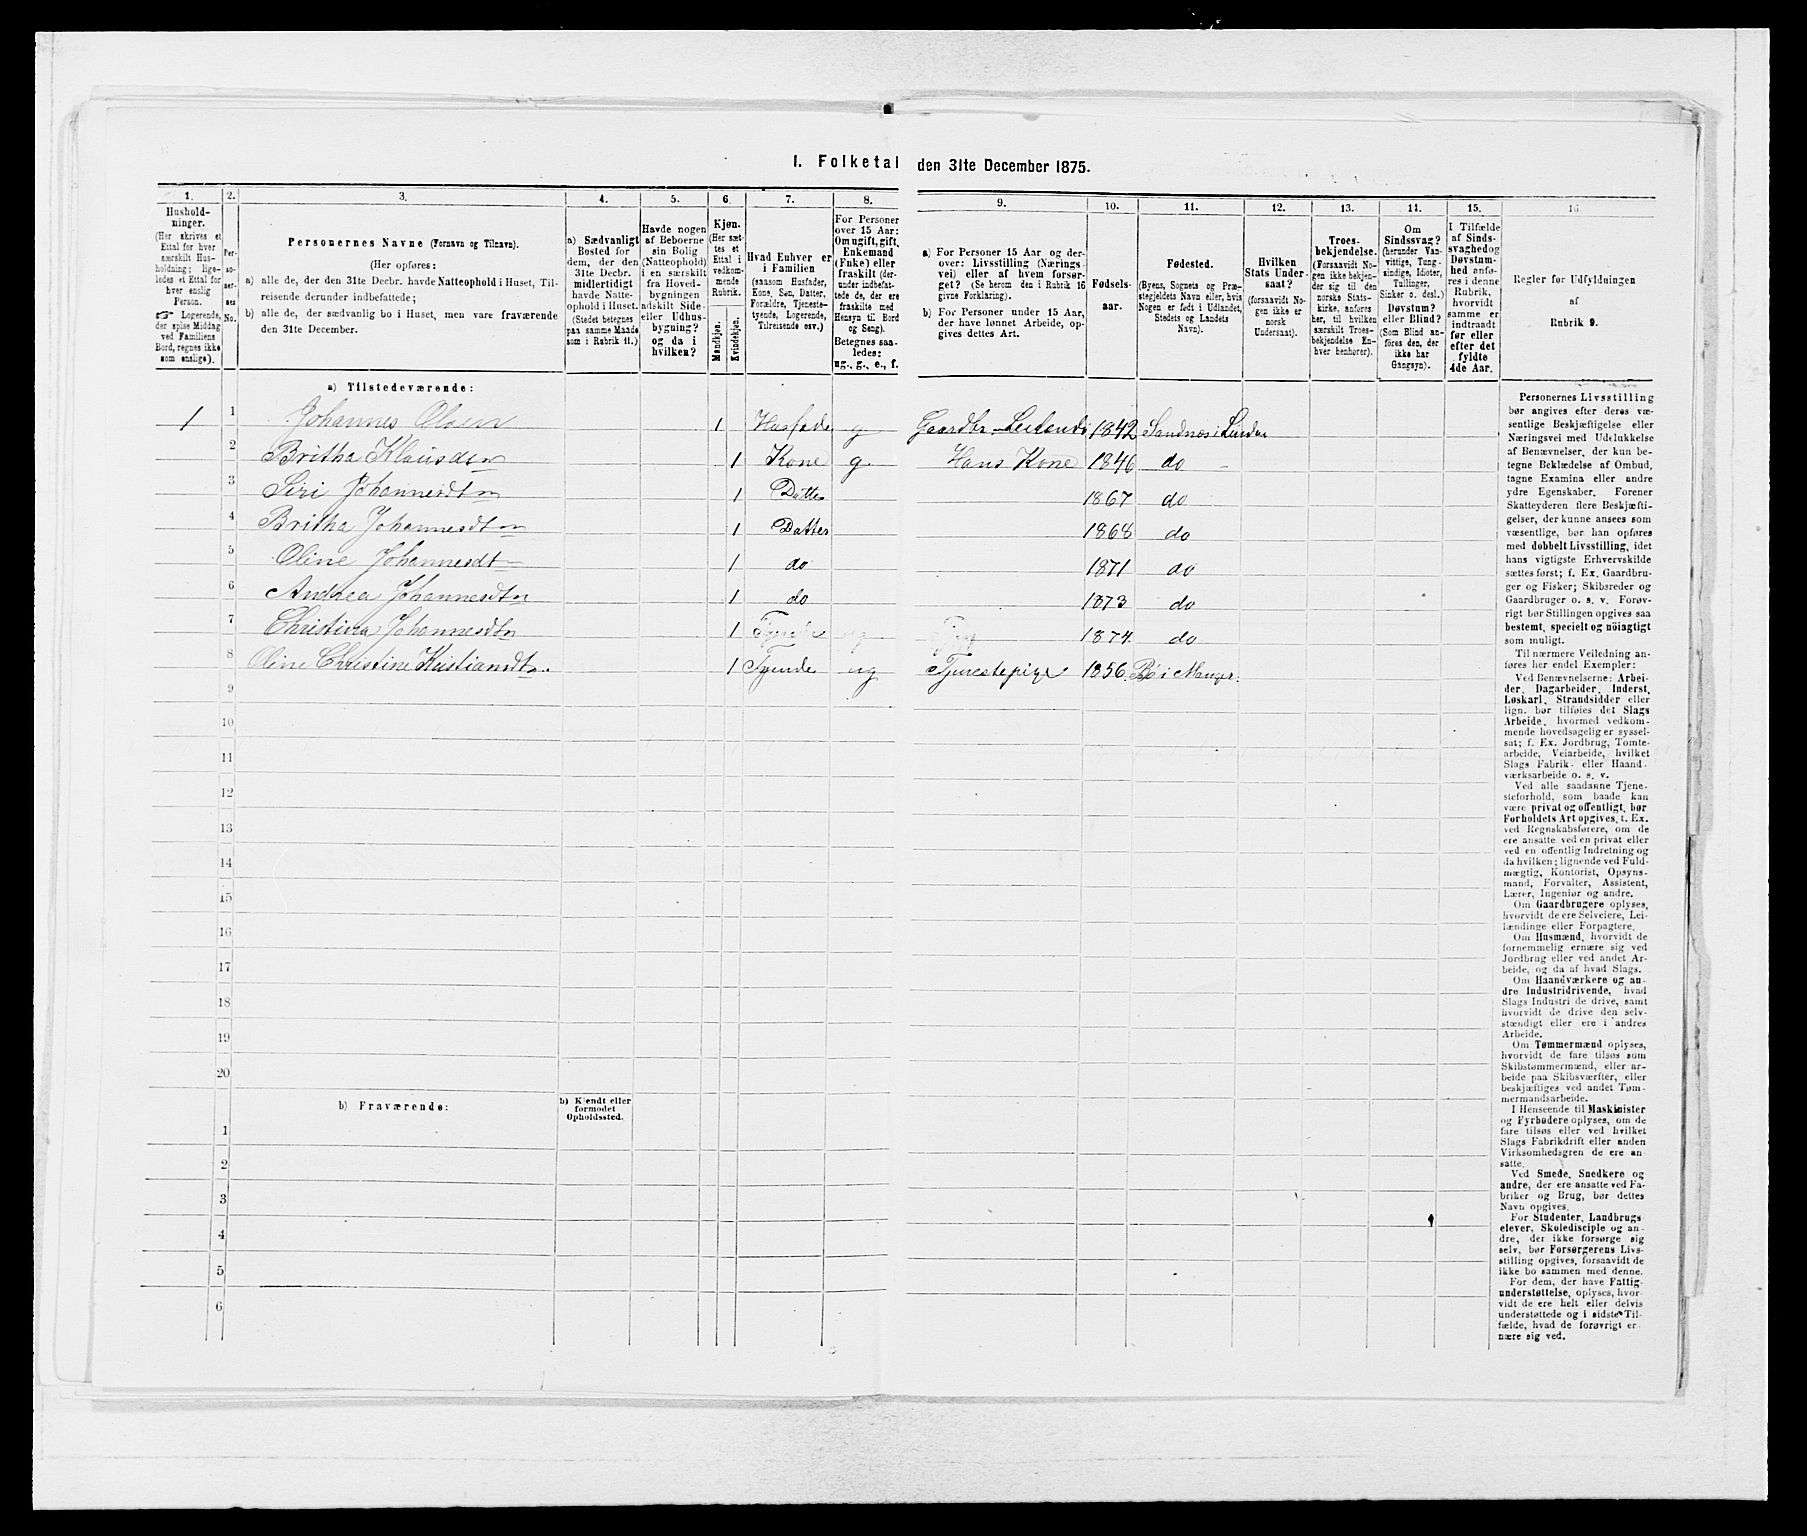 I. Folketal den 31te December 1875.
1. 2. 3. 4. 5. 6. 7. 8. 9. 10. 11. 12. 13. 14. 15. 16.
Hushold-
ninger.
(Her skrives et
Ettal for hver
særskilt Hus-
holdning; lige-
ledes et Ettal for
hver enslig
Person.
☞ Logerende,
der spise Middag
ved Familiens
Bord, regnes ikke
som enslige).
Per-
so-
ner-
nes
No.
Personernes Navne (Fornavn og Tilnavn).
(Her opføres:
a) alle de, der den 31te Decbr. havde Natteophold i Huset, Til-
reisende derunder indbefattede;
b) alle de, der sædvanlig bo i Huset, men vare fraværende
den 31te December.
a) Sædvanligt
Bosted for
dem, der den
31te Decbr.
midlertidigt
havde Natte-
ophold i Huset.
(Stedet betegnes
paa samme Maade
som i Rubrik 11.)
Havde nogen
af Beboerne
sin Bolig
(Natteophold)
i en særskilt
fra Hoved-
bygningen
adskilt Side-
eller Udhus-
bygning?
og da i
hvilken?
Kjøn.
(Her sæt-
tes et
Ettal i
vedkom-
mende
Rubrik.
Mandkjøn.
Kvindekjøn.
Hvad Enhver er
i Familien
(saasom Husfader,
Kone, Søn, Datter,
Forældre, Tjeneste-
tyende, Logerende,
Tilreisende osv.)
For Personer
over 15 Aar:
Om ugift, gift,
Enkemand
(Enke) eller
fraskilt (der-
under indbefat-
tede de, der ere
fraskilte med
Hensyn til Bord
og Seng).
Betegnes saa-
ledes:
ug., g., e., f.
a) For Personer 15 Aar og der-
over: Livsstilling (Nærings-
vei) eller af hvem forsør-
get? (Se herom den i Rubrik 16
givne Forklaring).
b) For Personer under 15 Aar,
der have lønnet Arbeide, op-
gives dettes Art.
Fødsels-
aar.
Fødested.
(Byens, Sognets og Præ-
stegjeldets Navn eller, hvis
Nogen er født i Udlandet,
Stedets og Landets
Navn).
Hvilken
Stats Under-
saat?
(forsaavidt No-
gen ikke er
norsk
Undersaat).
Troes-
bekjendelse.
(Forsaavidt No-
gen ikke bekjen-
der sig til den
norske Stats-
kirke, anføres
her, til hvilken
særskilt Troes-
bekjendelse En-
hver henhører).
Om
Sindssvag?
(herunder Van-
vittige, Tung-
sindige, Idioter,
Tullinger,
Sinker o. desl.)
Døvstum?
eller Blind?
(Som Blind an-
føres den, der
ikke har
Gangsyn).
I Tilfælde
af Sinds-
svaghed og
Døvstum-
hed anfø-
res i denne
Rubrik,
hvorvidt
samme er
indtraadt
før eller
efter det
fyldte
4de Aar.
Regler før Udfyldningen
af
Rubrik 9.
a) Tilstedeværende:
1 1 Johannes Olsen 1 Husfade g Gaardbr Leilendi 1842 Sandnes i Lindas
2 Britha Klausdtn 1 Kone g. Hans Kone 1846 do
3 Siri Johannesdtn 1 Datte 1867 do
4 Britha Johannesdtn 1 Datter 1868 do
5 Oline Johannesdtn 1 do 1871 do
6 Andrea Johannesdtn 1 do 1873 do
7 Christina Johannesdtn 1 1874 do
8 Oline Christine Kristiansdtn 1 Tyende ug Tjenestepige 1856 Bø i Manger.
9
10
11
12
13
14
15
16
17
18
19
20
b) Fraværende:
b) Kjendt eller
formodet
Opholdssted.
1
2
3
4
5
6
Personernes Livsstilling
bør angives efter deres væ-
sentlige Beskjæftigelse eller
Næringsvei med Udelukkelse
af Benævnelser, der kun be-
tegne Beklædelse af Ombud,
tagne Examina eller andre
ydre Egenskaber. Forener
Skatteyderen flere Beskjæfti-
gelser, der kunne ansees som
væsentlige, bør han opføres
med dobbelt Livsstilling, idet
hans vigtigste Erhvervskilde
sættes først; f. Ex. Gaardbru-
ger og Fisker; Skibsreder og
Gaardbruger o. s. v. Forøv-
rigt bør Stillingen opgives saa
bestemt, specielt og nøiagtigt
som muligt.
Til nærmere Veiledning an-
føres her endel Exempler:
Ved Benævnelserne: Arbei-
der, Dagarbeider, Inderst,
Løskarl, Strandsidder eller
lign. bør tilføies det Slags
Arbeide, hvormed vedkom-
mende hovedsagelig er syssel-
sat; f. Ex. Jordbrug, Tomte-
arbeide, Veiarbeide, hvilket
Slags Fabrik- eller Haand-
værksarbeide o. s. v.
Ved alle saadanne Tjene-
steforhold, som baade kan
være privat og offentligt, bør
Forholdets Art opgives, t. Ex.
ved Regnskabsførere, om de
ere ansatte ved en privat eller
ved en offentlig Indretning og
da hvilken; lignende ved Fuld-
mægtig, Kontorist, Opsyns-
mand, Forvalter, Assistent,
Lærer, Ingeniør og andre.
Om Gaardbrugere oplyses,
hvorvidt de ere Selveiere, Lei-
lændinge eller Forpagtere.
Om Husmænd, hvorvidt de
fornemmelig ernære sig ved
Jordbrug eller ved andet Ar-
beide, og da af hvad Slags.
Om Haandværkere og an-
dre Industridrivende, hvad
Slags Industri de drive, samt
hvorvidt de drive den selv-
stændigt eller ere i andres
Arbeide.
Om Tømmermænd oplyses,
hvorvidt de fare tilsøs som
Skibstømmermænd, eller ar-
beide paa Skibsværfter, eller
beskjæftiges ved andet Tøm-
mermandsarbeide.
I Henseende til Maskinister
og Fyrbødere oplyses, om de
fare tilsøs eller ved hvilket
Slags Fabrikdrift eller anden
Virksomhedsgren de ere an-
satte.
Ved Smede, Snedkere og
andre, der ere ansatte ved Fa-
briker og Brug, bør dettes
Navn opgives.
For Studenter, Landbrugs-
elever, Skoledisciple og an-
dre, der ikke forsørge sig
selv, bør Forsørgerens Livs-
stilling opgives, forsaavidt de
ikke bo sammen med denne.
For dem, der have Fattig-
understøttelse, oplyses, hvor-
vidt de ere helt eller delvis
understøttede og i sidste Til-
fælde, hvad de forøvrigt er-
nære sig ved.